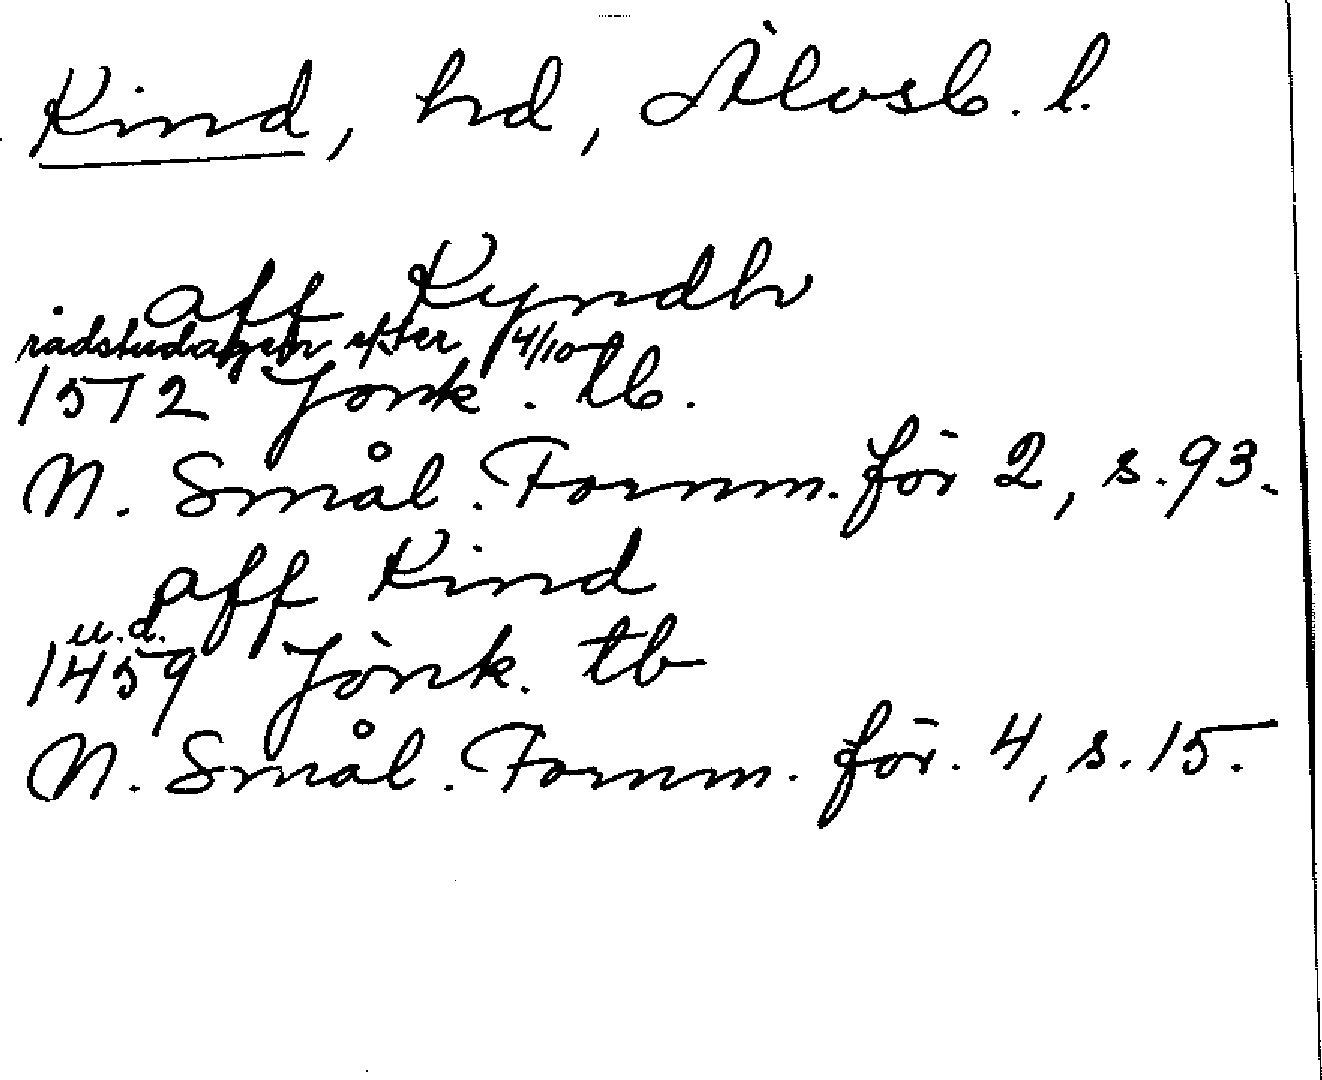 Kind, hd, Älvsb. l.
aff Kyndh
rådstudagen efter 14/10
1512 Jönk. tb.
N. Smål. Fornm. för 2, s. 93.
aff Kind
u.d.
1459 Jönk. tb
N. Smål. Fornm. för. 4, s. 15.